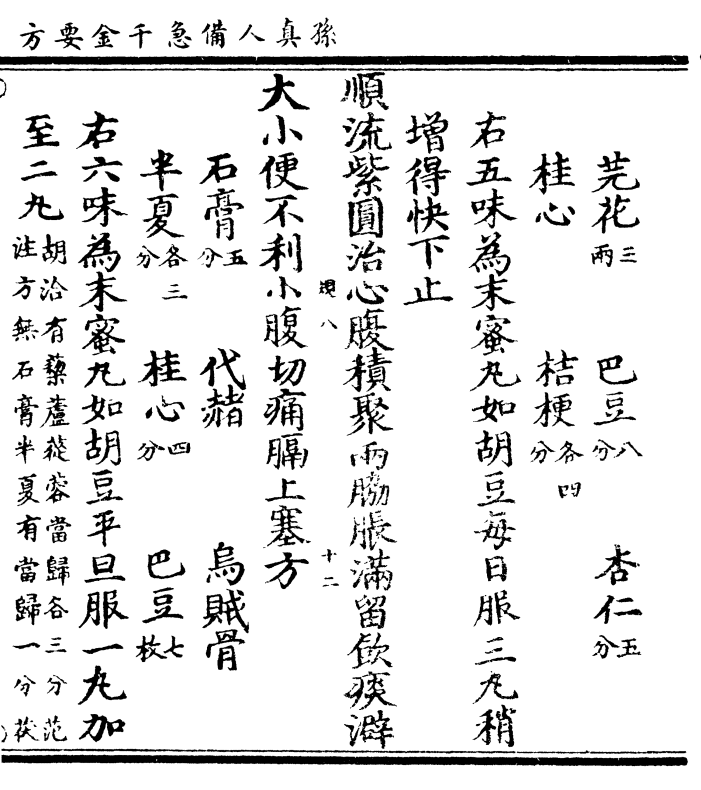 孫真人備急千金要方
芫花三兩 巴豆八分 杏仁五分
桂心 桔梗各四分
右五味為末蜜丸如胡豆每日服三丸稍
增得快下止
順流紫圓治心腹積聚兩脇脹滿留飲痰澼
八 十二
大小便不利小腹切痛膈上塞方
石膏五分 代赭 烏賊骨
半夏各三分 桂心四分 巴豆七枚
右六味為末蜜丸如胡豆平旦服一丸加
至二丸胡洽有藜蘆蓯蓉當歸各三分范
汪方無石膏半夏有當歸一分茯